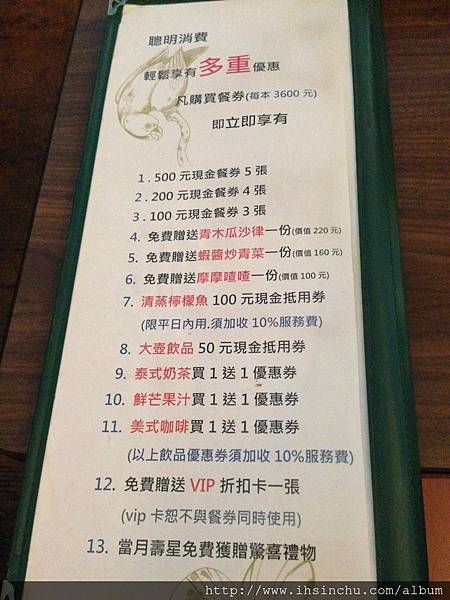 聰明消費
輕鬆享有多重優惠
凡購買餐券(每本 3600 元)
即立即享有
1 . 500 元現金餐券 5 張
2 . 200 元現金餐券 4 張
3 . 100 元現金餐券 3 張
4. 免費贈送青木瓜沙律一份(價值 220 元)
5. 免費贈送蝦醬炒青菜一份(價值 160 元)
6. 免費贈送摩摩喳喳一份(價值 100 元)
7. 清蒸檸檬魚 100 元現金抵用券
(限平日內用.須加收 10%服務費)
8. 大壺飲品 50 元現金抵用券
9. 泰式奶茶買 1 送 1 優惠券
10. 鮮芒果汁買 1 送 1 優惠券
11. 美式咖啡買 1 送 1 優惠券
(以上飲品優惠券須加收 10%服務費)
12. 免費贈送 VIP 折扣卡一張
(vip 卡恕不與餐券同時使用)
13. 當月壽星免費獲贈驚喜禮物
http://www.ihsinchu.com/album